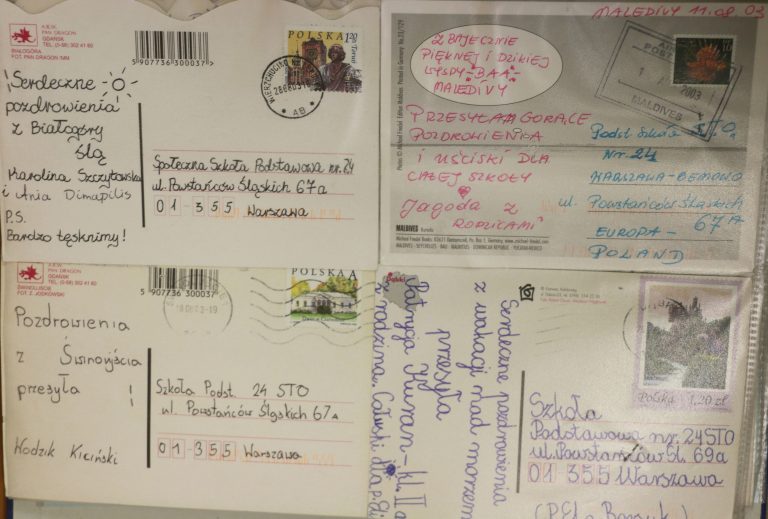 A.B.W.
PAN DRAGON
GDAŃSK
TEL. (0-58) 302 41 60
BIAŁOGÓRA
FOT. PAN DRAGON TEAM
5907736300037
POLSKA
1,20
Serdeczne
pozdrowienia
z Białogóry
ślą
Karolina Szczytowska
i Ania Dimapilis
P.S.
Bardzo tęsknimy!
Społeczna Szkoła Podstawowa nr. 24
ul. Powstańców Śląskich 67a
01-355 Warszawa
MALEDIVY 11.08.03
Z BAJECZNIE
PIĘKNEJ I DZIKIEJ
WYSPY-BAA-
MALEDIVY
PRZESYŁAM GORĄCE
POZDROWIENIA
I UŚCISKI DLA
CAŁEJ SZKOŁY
Jagoda z
RODZICAMI
MALDIVES
2003
Podst. Szkoła STO.
Nr. 24
WARSZAWA-BEMOWO
ul. Powstańców Śląskich
67A
EUROPA-
POLAND
MALDIVES
A.B.W.
PAN DRAGON
GDAŃSK
TEL. (0-58) 302 41 60
ŚWINOUJŚCIE
5907736300037
POLSKA A
Pozdrowienia
z Świnoujścia
przesyła
Szkoła Podst. 24 STO
ul. Powstańców Śląskich 67A
01-355 Warszawa
Serdeczne pozdrowienia
z wakacji nad morzem
przesyła
z rodziną.
Polska 1,20 zł
Szkoła
Podstawowa nr. 24 STO
ul. Powstańców Śl. 69a
01-355 Warszawa